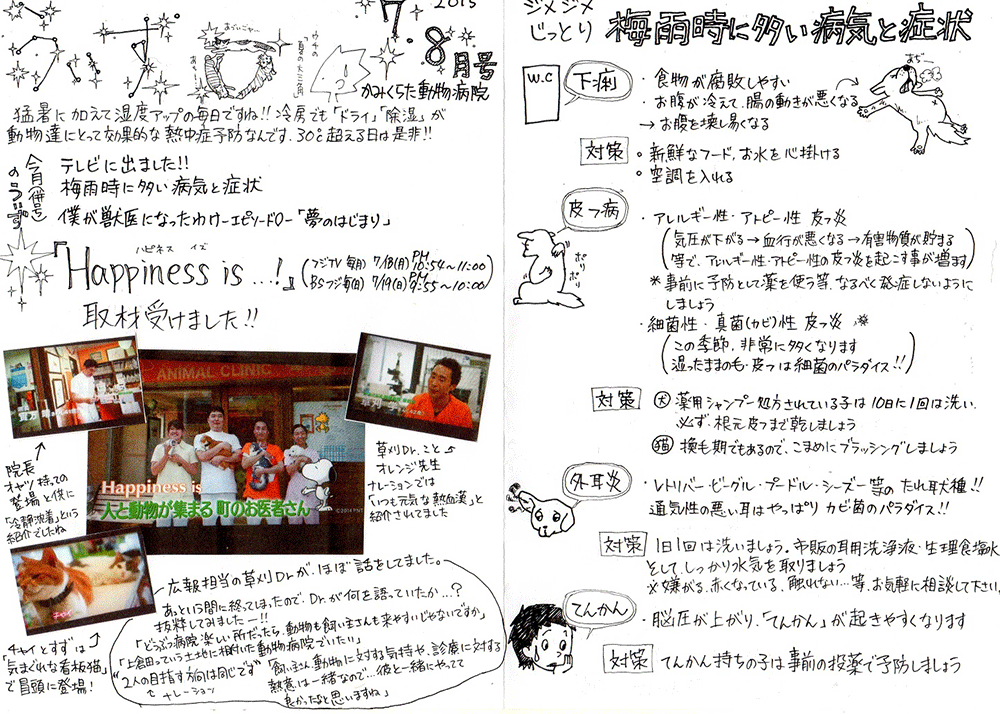 すず
2015
7・8月号
かみくらた動物病院
ウチの「夏の大三角」
猛暑に加えて湿度アップの毎日ですね!!冷房でも「ドライ」「除湿」が
動物達にとって効果的な熱中症予防なんです。30℃超える日は是非!!
今月(併号)のうすず
テレビに出ました!!
梅雨時に多い病気と症状
僕が獣医になったわけーエピソード0ー「夢のはじまり」
ハピネス イズ
『Happiness is …!』
(フジTV(毎月) 7/18(月) PM10:54〜11:00)
(BSフジ(毎日) 7/19(日) PM9:55〜10:00)
取材受けました!!
ANIMAL CLINIC
Happiness is
人と動物が集まる 町のお医者さん
©2014 PNT
院長
オヤツ持っての
登場と供に
「冷静沈着」という
紹介でしたね
草刈Dr.こと
オレンジ先生
ナレーションでは
「いつも元気な熱血漢」と
紹介されてました
チャイ
チャイとすずは
「気まぐれな看板猫」
で冒頭に登場!
広報担当の草刈Drが、ほぼ話をしてました。
あっという間に終ってしまったので、Dr.が何を語っていたか…?
抜粋してみましたー!!
「どうぶつ病院、楽しい所だったら、動物も飼い主さんも来やすいじゃないですか」
「上倉田っていう土地に根付いた動物病院でいたい」
"2人の目指す方向は同じです"
ナレーション
「飼い主さん、動物に対する気持や、診療に対する
熱意は一緒なので…彼と一緒にやってて
良かったなと思いますね」
ジメジメ
じっとり
梅雨時に多い病気と症状
W.C
下痢
・食物が腐敗しやすい
・お腹が冷えて、腸の動きが悪くなる
→お腹を壊し易くなる
対策
。新鮮なフード、お水を心掛ける
。空調を入れる
皮フ病
ポリ ポリ
・アレルギー性・アトピー性 皮フ炎
(気圧が下がる→血行が悪くなる→有害物質が貯まる
等で、アレルギー性・アトピー性の皮フ炎を起こす事が増ます)
*事前に予防として薬を使う等、なるべく発症しないように
しましょう
・細菌性・真菌(カビ)性 皮フ炎
(この季節、非常に多くなります
湿ったままの毛・皮フは細菌のパラダイス!!)
対策
犬 薬用シャンプー処方されている子は10日に1回は洗い、
必ず、根元皮フまで乾しましょう
猫 換毛期でもあるので、こまめにブラッシングしましょう
外耳炎
・レトリバー・ビーグル・プードル・シーズー等のたれ耳犬種!!
通気性の悪い耳はやっぱりカビ菌のパラダイス!!
対策
1日1回は洗いましょう。市販の耳用洗浄液・生理食塩水
として、しっかり水気を取りましょう
※嫌がる、赤くなっている、触れない…等、お気軽に相談して下さい
てんかん
・脳圧が上がり、「てんかん」が起きやすくなります
対策
てんかん持ちの子は事前の投薬で予防しましょう